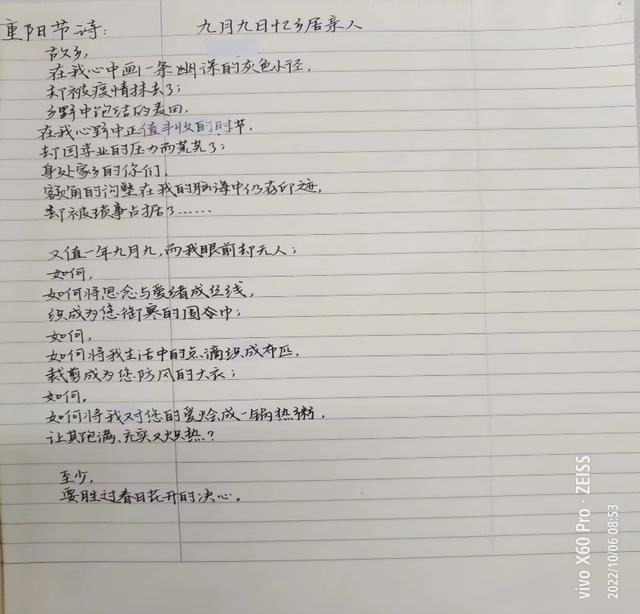 重阳节诗: 九月九日忆乡居亲人
故乡,
在我心中画一条幽深的灰色小径,
却被疫情抹去了;
乡野中饱结的麦田,
在我心野中正值丰收的时节,
却因学业的压力而荒芜了;
身处家乡的你们,
额角的沟壑在我的脑海中仍存印迹,
却被琐事占据了……
又值一年九月九,而我眼前却无人;
如何,
如何将思念与爱绪成丝线,
织成为您御寒的围巾;
如何,
如何将我生活中的点滴织成布匹,
裁剪成为您防风的大衣;
如何,
如何将我对您的爱烩成一锅热粥,
让其饱满、充实又炽热?
至少,
要胜过春日花开的决心。
vivo X60 Pro · ZEISS
2022/10/06 08:53